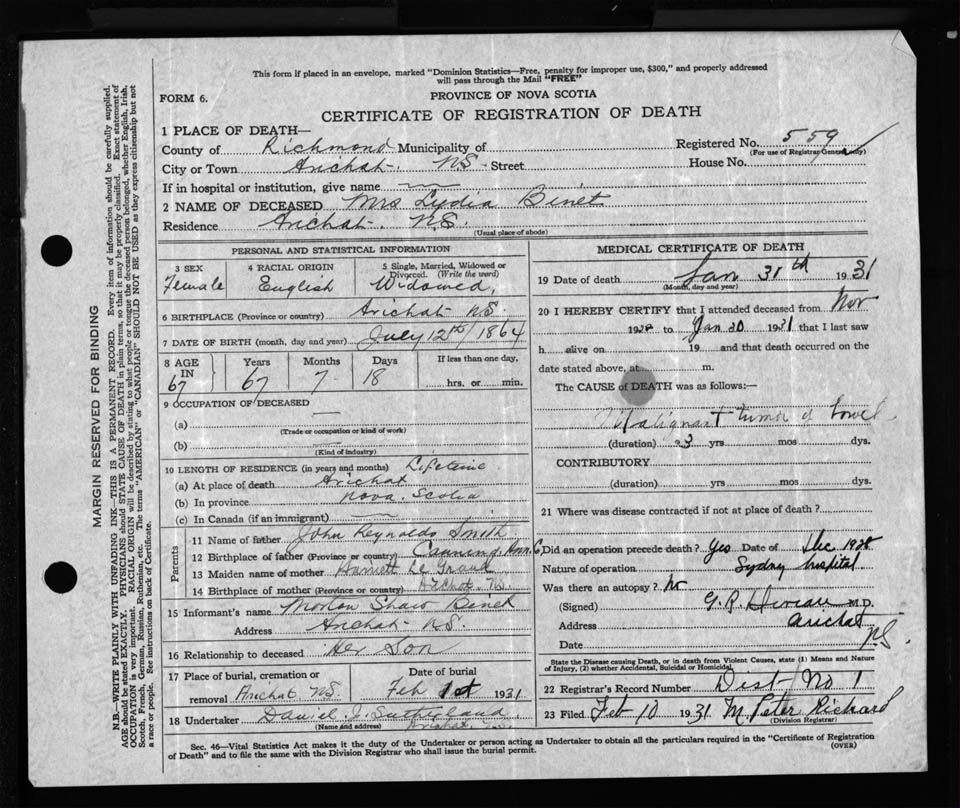 This form if placed in an envelope, marked "Dominion Statistics—Free, penalty for improper use, $300," and properly addressed
will pass through the Mail "FREE"
FORM 6.
PROVINCE OF NOVA SCOTIA
CERTIFICATE OF REGISTRATION OF DEATH
1 PLACE OF DEATH—
County of Richmond Municipality of Registered No. 559
(For use of Registrar General only)
City or Town Arichat N.S. Street House No.
If in hospital or institution, give name
2 NAME OF DECEASED Mrs Lydia Binet
Residence Arichat N.S.
(Usual place of abode)
PERSONAL AND STATISTICAL INFORMATION
3 SEX 4 RACIAL ORIGIN 5 Single, Married, Widowed or
Divorced. (Write the word)
Female English Widowed,
6 BIRTHPLACE (Province or country) Arichat N.S.
7 DATE OF BIRTH (month, day and year) July 12th/1864
8 AGE Years Months Days If less than one day,
IN
67 67 7 18 hrs. or min.
9 OCCUPATION OF DECEASED
(a)
(Trade or occupation or kind of work)
(b)
(Kind of industry)
10 LENGTH OF RESIDENCE (in years and months) Lifetime
(a) At place of death Arichat
(b) In province Nova Scotia
(c) In Canada (if an immigrant)
Parents
11 Name of father John Reynolds Smith
12 Birthplace of father (Province or country) Canning
13 Maiden name of mother Harriett Le
14 Birthplace of mother (Province or country) Arichat N.S.
15 Informant's name Morton Shaw Binet
Address Arichat N.S.
16 Relationship to deceased Her Son
17 Place of burial, cremation or Date of burial
removal Arichat N.S. Feb 1st 1931
18 Undertaker Daniel J. Sutherland
(Name and address) Arichat
MEDICAL CERTIFICATE OF DEATH
19 Date of death Jan 31th 1931
(Month, day and year)
20 I HEREBY CERTIFY that I attended deceased from Nov
1928 to Jan 20 1931 that I last saw
h alive on 19 and that death occurred on the
date stated above, at m.
The CAUSE of DEATH was as follows:—
Malignant tumor of bowel
(duration) 3 yrs mos dys.
CONTRIBUTORY
(duration) yrs mos dys.
21 Where was disease contracted if not at place of death?
Did an operation precede death? Yes Date of Dec 1928
Nature of operation Sydney hospital
Was there an autopsy? No
(Signed) G. R. M.D.
Address Arichat
Date N.S.
State the Disease causing Death, or in death from Violent Causes, state (1) Means and Nature
of Injury, (2) whether Accidental, Suicidal or Homicidal.
22 Registrar's Record Number Dist No 1
23 Filed Feb 10 1931 M. Peter Richard
(Division Registrar)
Sec. 46—Vital Statistics Act makes it the duty of the Undertaker or person acting as Undertaker to obtain all the particulars required in the "Certificate of Registration
of Death" and to file the same with the Division Registrar who shall issue the burial permit.
(OVER)
MARGIN RESERVED FOR BINDING
N.B.—WRITE PLAINLY WITH UNFADING INK—THIS IS A PERMANENT RECORD. Every item of information should be carefully supplied.
AGE should be stated EXACTLY. PHYSICIANS should STATE CAUSE OF DEATH in plain terms, so that it may be properly classified. Exact statement of
OCCUPATION is very important. RACIAL ORIGIN will be described by stating to what people or tongue the deceased person belonged, whether English, Irish,
Scotch, French, German, Russian, Ruthenian, etc. The terms "AMERICAN" or "CANADIAN" SHOULD NOT BE USED as they express citizenship but not
a race or people. See instructions on back of Certificate.